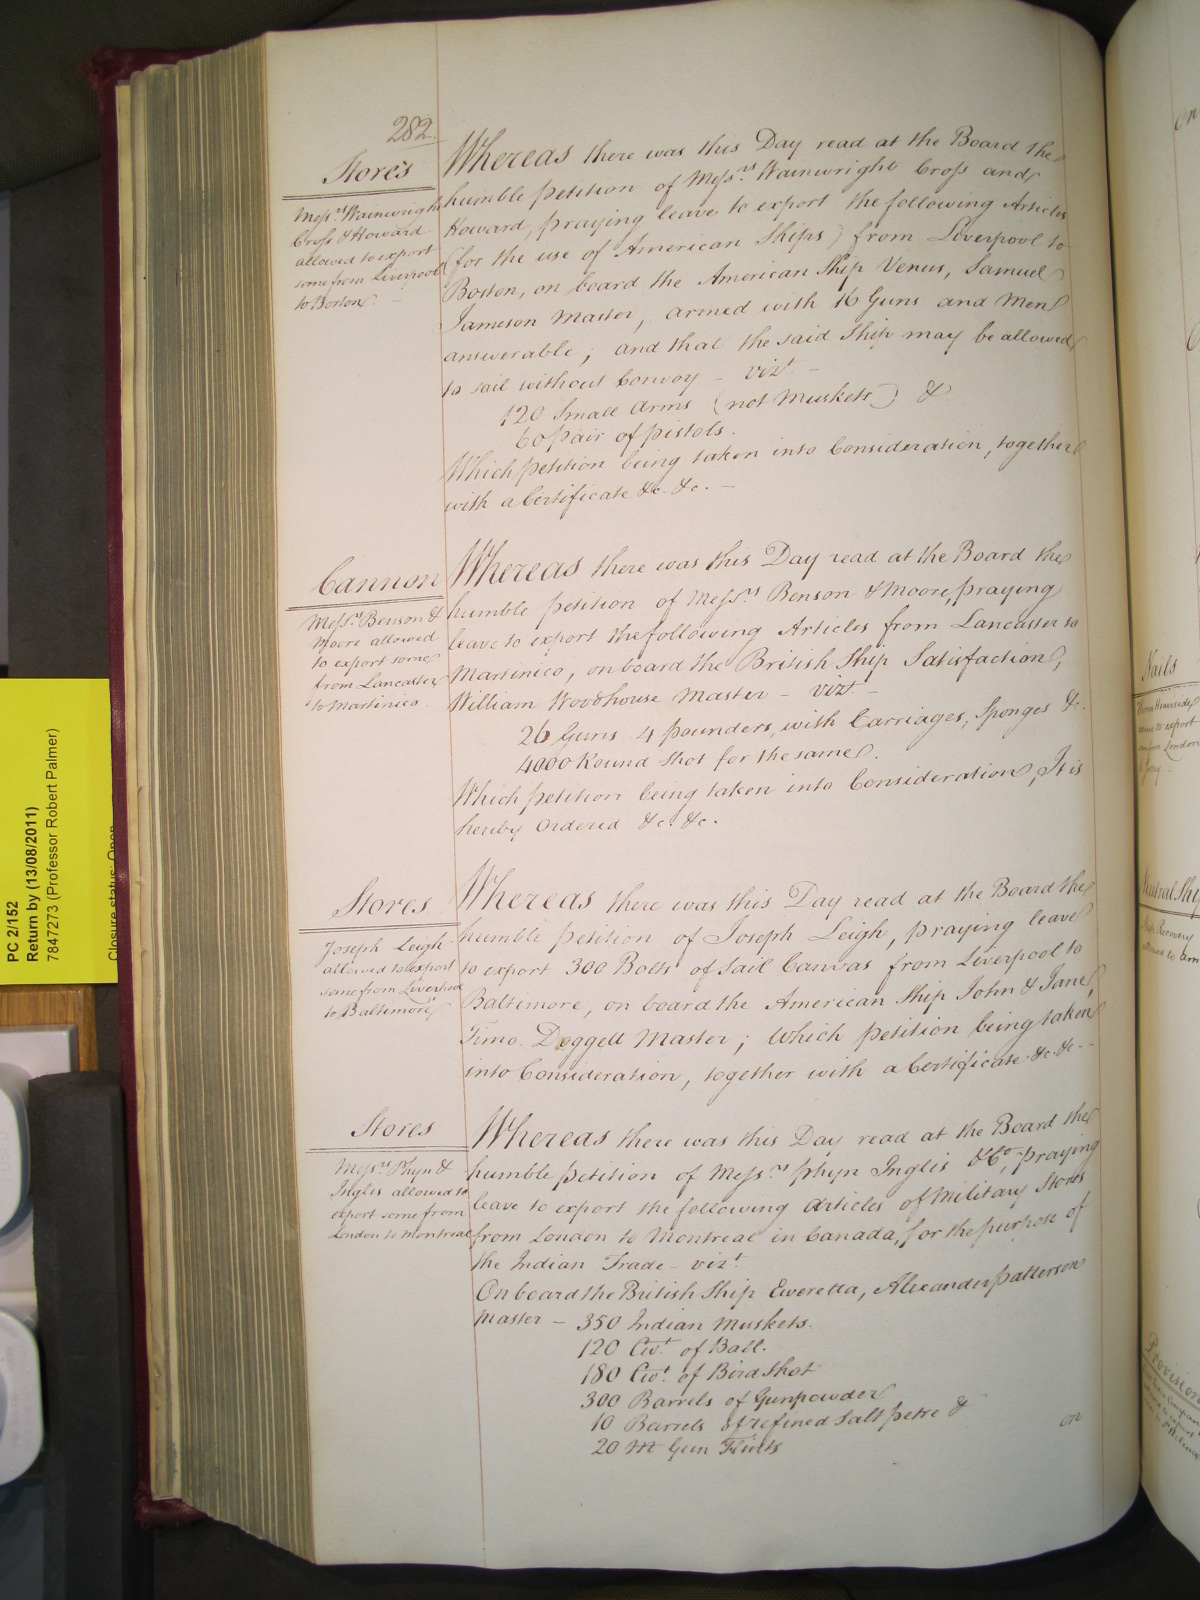 282.
Stores
Mess.rs Wainwright
Cross & Howard
allowed to export
some from Liverpool
to Boston. -
Whereas there was this Day read at the Board the
humble petition of Mess.rs Wainwright Cross and
Howard, praying leave to export the following Articles
(for the use of American Ships) from Liverpool to
Boston, on board the American Ship Venus, Samuel
Jameson Master, armed with 16 Guns and Men
answerable; and that the said Ship may be allowed
to sail without Convoy - vizt. -
120 Small Arms (not Muskets) &
60 pair of pistols.
Which petition being taken into Consideration, together
with a Certificate &c. &c. -
Cannon
Mess.rs Benson &
Moore allowed
to export some
from Lancaster
to Martinico.
Whereas there was this Day read at the Board the
humble petition of Mess.rs Benson & Moore, praying
leave to export the following Articles from Lancaster to
Martinico, on board the British Ship Satisfaction,
William Woodhouse Master - vizt -
26 Guns 4 pounders, with Carriages, Sponges &c.
4000 Round Shot for the same.
Which petition being taken into Consideration, It is
hereby Ordered &c. &c.
Stores
Joseph Leigh
allowed to export
some from Liverpool
to Baltimore
Whereas there was this Day read at the Board the
humble petition of Joseph Leigh, praying leave
to export 300 Bolts of Sail Canvas from Liverpool to
Baltimore, on board the American Ship John & Jane,
Timo. Doggell Master; Which petition being taken
into Consideration, together with a Certificate &c. &c. -
Stores
Mess.rs Phyn &
Inglis allowed to
export some from
London to Montreal
Whereas there was this Day read at the Board the
humble petition of Mess.rs Phyn Inglis & Co., praying
leave to export the following Articles of Military Stores
from London to Montreal in Canada, for the purpose of
the Indian Trade - vizt.
On board the British Ship Eweretta, Alexander Patterson
Master - 350 Indian Muskets.
120 Cwt. of Ball.
180 Cwt. of Bird Shot
300 Barrels of Gunpowder
10 Barrels of refined Salt petre &
20 M Gun Flints
on
PC 2/152
Return by (13/08/2011)
7847273 (Professor Robert Palmer)
Closure status: Open
Nails
to export
from London
Neutral Ship
Provisions